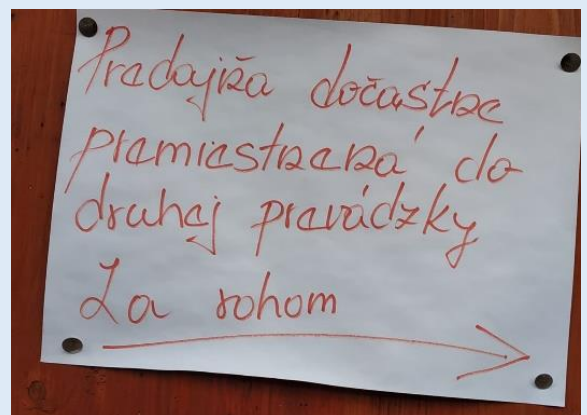 Predajňa dočastne
premiestnená do
druhej prevádzky
Za rohom